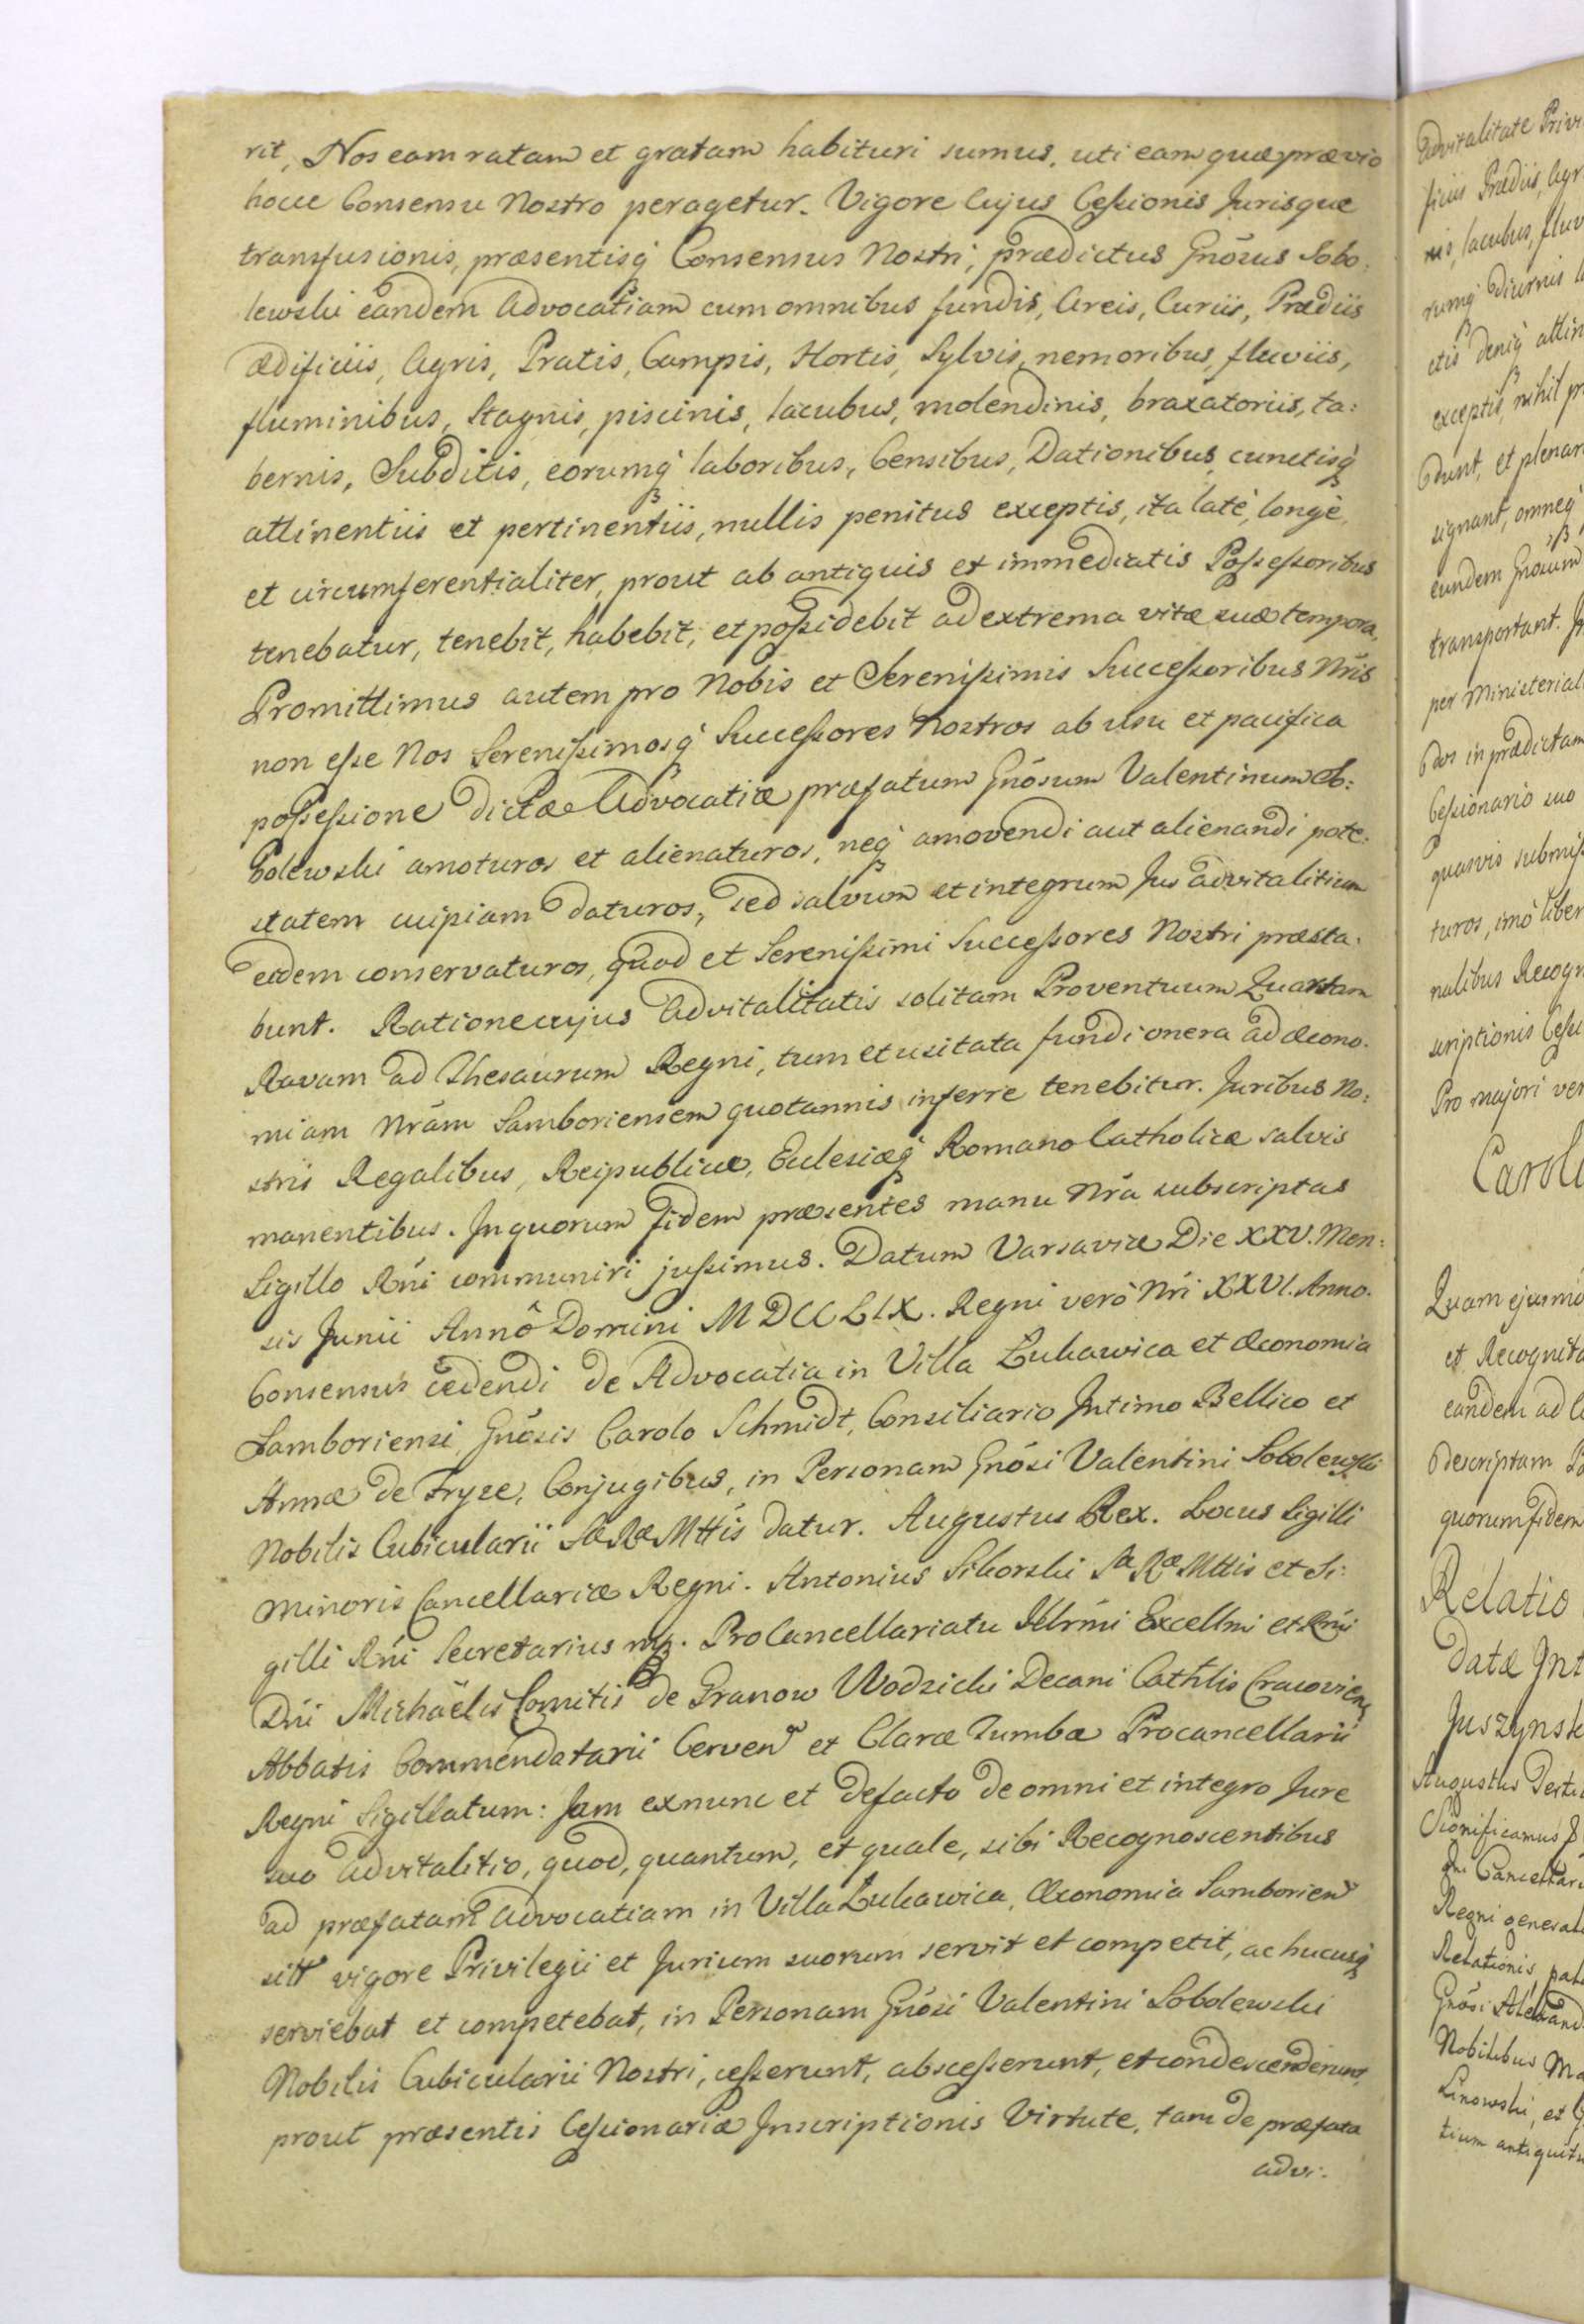 rit, Nos eam ratam et gratam habituri sumus, uti eam quæ prævio
hocce Consensu Nostro peragetur. Vigore Cujus Ceßionis Jurisque
transfusionis, præsentisq̃ Consensus Nostri, prædictus Gnõsus Sobo:
lewski eandem Advocatiam cum omnibus fundis, Areis, Curiis, Prædiis
Ædificiis, Agris, Pratis, Campis, Hortis, Sylvis, nemoribus, fluviis,
fluminibus, Stagnis, piscinis, lacubus, molendinis, braxatoriis, ta:
bernis, Subditis, eorumq̃ laboribus, Censibus, Dationibus, cunctisq̃
attinentiis et pertinentiis, nullis penitus exceptis, ita latè, longè,
et circumferentialiter, prout ab antiquis et immediatis Poßeßoribus
tenebatur, tenebit, habebit, et poßidebit ad extrema vitæ suæ tempora.
Promittimus autem pro Nobis et Serenißimis Succeßoribus Nr̃is
non eße Nos Serenißimosq̃ Succeßores Nostros ab usu et pacifica
poßeßione dictæ Advocatiæ præfatum Gnõsum Valentinum So:
bolewski amoturos et alienaturos, neq̃ amovendi aut alienandi pote:
statem cuipiam daturos, sed salvum et integrum Jus advitalitium
eidem conservaturos, quod et Serenißimi Succeßores Nostri præsta:
bunt. Ratione cujus Advitalitatis solitam Proventuum Quartam
Ravam ad Thesaurum Regni, tum et usitata fundi onera ad Œcono:
miam Nr̃am Samboriensem quotannis inferre tenebitur. Juribus No:
stris Regalibus, Reipublicæ, Eclesiæq̃ Romano Catholicæ salvis
manentibus. In quorum fidem præsentes manu Nr̃a subscriptas
Sigillo Rñi communiri jußimus. Datum Varsaviæ Die XXV. Men:
sis Junii Annô Domini MDCCLIX. Regni verò Nr̃i XXVI. Anno.
Consensus cedendi de Advocatia in Villa Łukawica et Œconomia
Samboriensi, Gnõsis Carolo Schmidt, Consiliario Intimo Bellico et
Annæ de Fryze, Conjugibus, in Personam Gnõsi Valentini Sobolewski
Nobilis Cubicularii SæRæMttis datur. Augustus Rex. Locus Sigilli
Minoris Cancellariæ Regni. Antonius Sikorski Sæ Ræ Mttis et Si:
gilli Rñi Secretarius mp. ProCancellariatu Illr̃mi Excellmi et Rñi
Dñi Michaëlis Comitis de Granow Wodzicki Decani Cathlis Cracovien
Abbatis Commendatarii Cerven̄ et Claræ Tumbæ Procancellarii
Regni Sigillatum: Jam exnunc et defacto de omni et integro Jure
suo advitalitio, quod, quantum, et quale, sibi Recognoscentibus
ad præfatam Advocatiam in Villa Łukawica, Œconomia Samborien̄
sitt̃ vigore Privilegii et Jurium suorum servit et competit, ac hucusq̃
serviebat et competebat, in Personam Gnõsi Valentini Sobolewski
Nobilis Cubicularii Nostri, ceßerunt, absceßerunt, et condescenderunt,
prout præsentis Ceßionariæ Inscriptionis Virtute, tam de præfata
advi:
advitalitate Privi
ficiis Prædiis, Agr
nis, lacubus, fluv
rumq̃ diurnis l
ctis deniq̃ attin
exceptis, nihil pr
dunt, et plenar
signant, omneq̃
eundem Gnosum
transportant. J
per Ministerial
dos in prædictam
Ceßionario suo
quasvis submiß
turos, imò liber
nalibus Recogn
scriptionis Ceßi
Pro majori ver
Carol
Quam ejusmo
et Recognita
eandem ad
descriptam
quorum fidem
Relatio
Datæ Int
Juszynsk
Augustus Terti
Significamus
Cancellari
Regni general
Relationis
Gnõsi Alexand
Nobilibus Ma
Linowski, et
tium antiquit